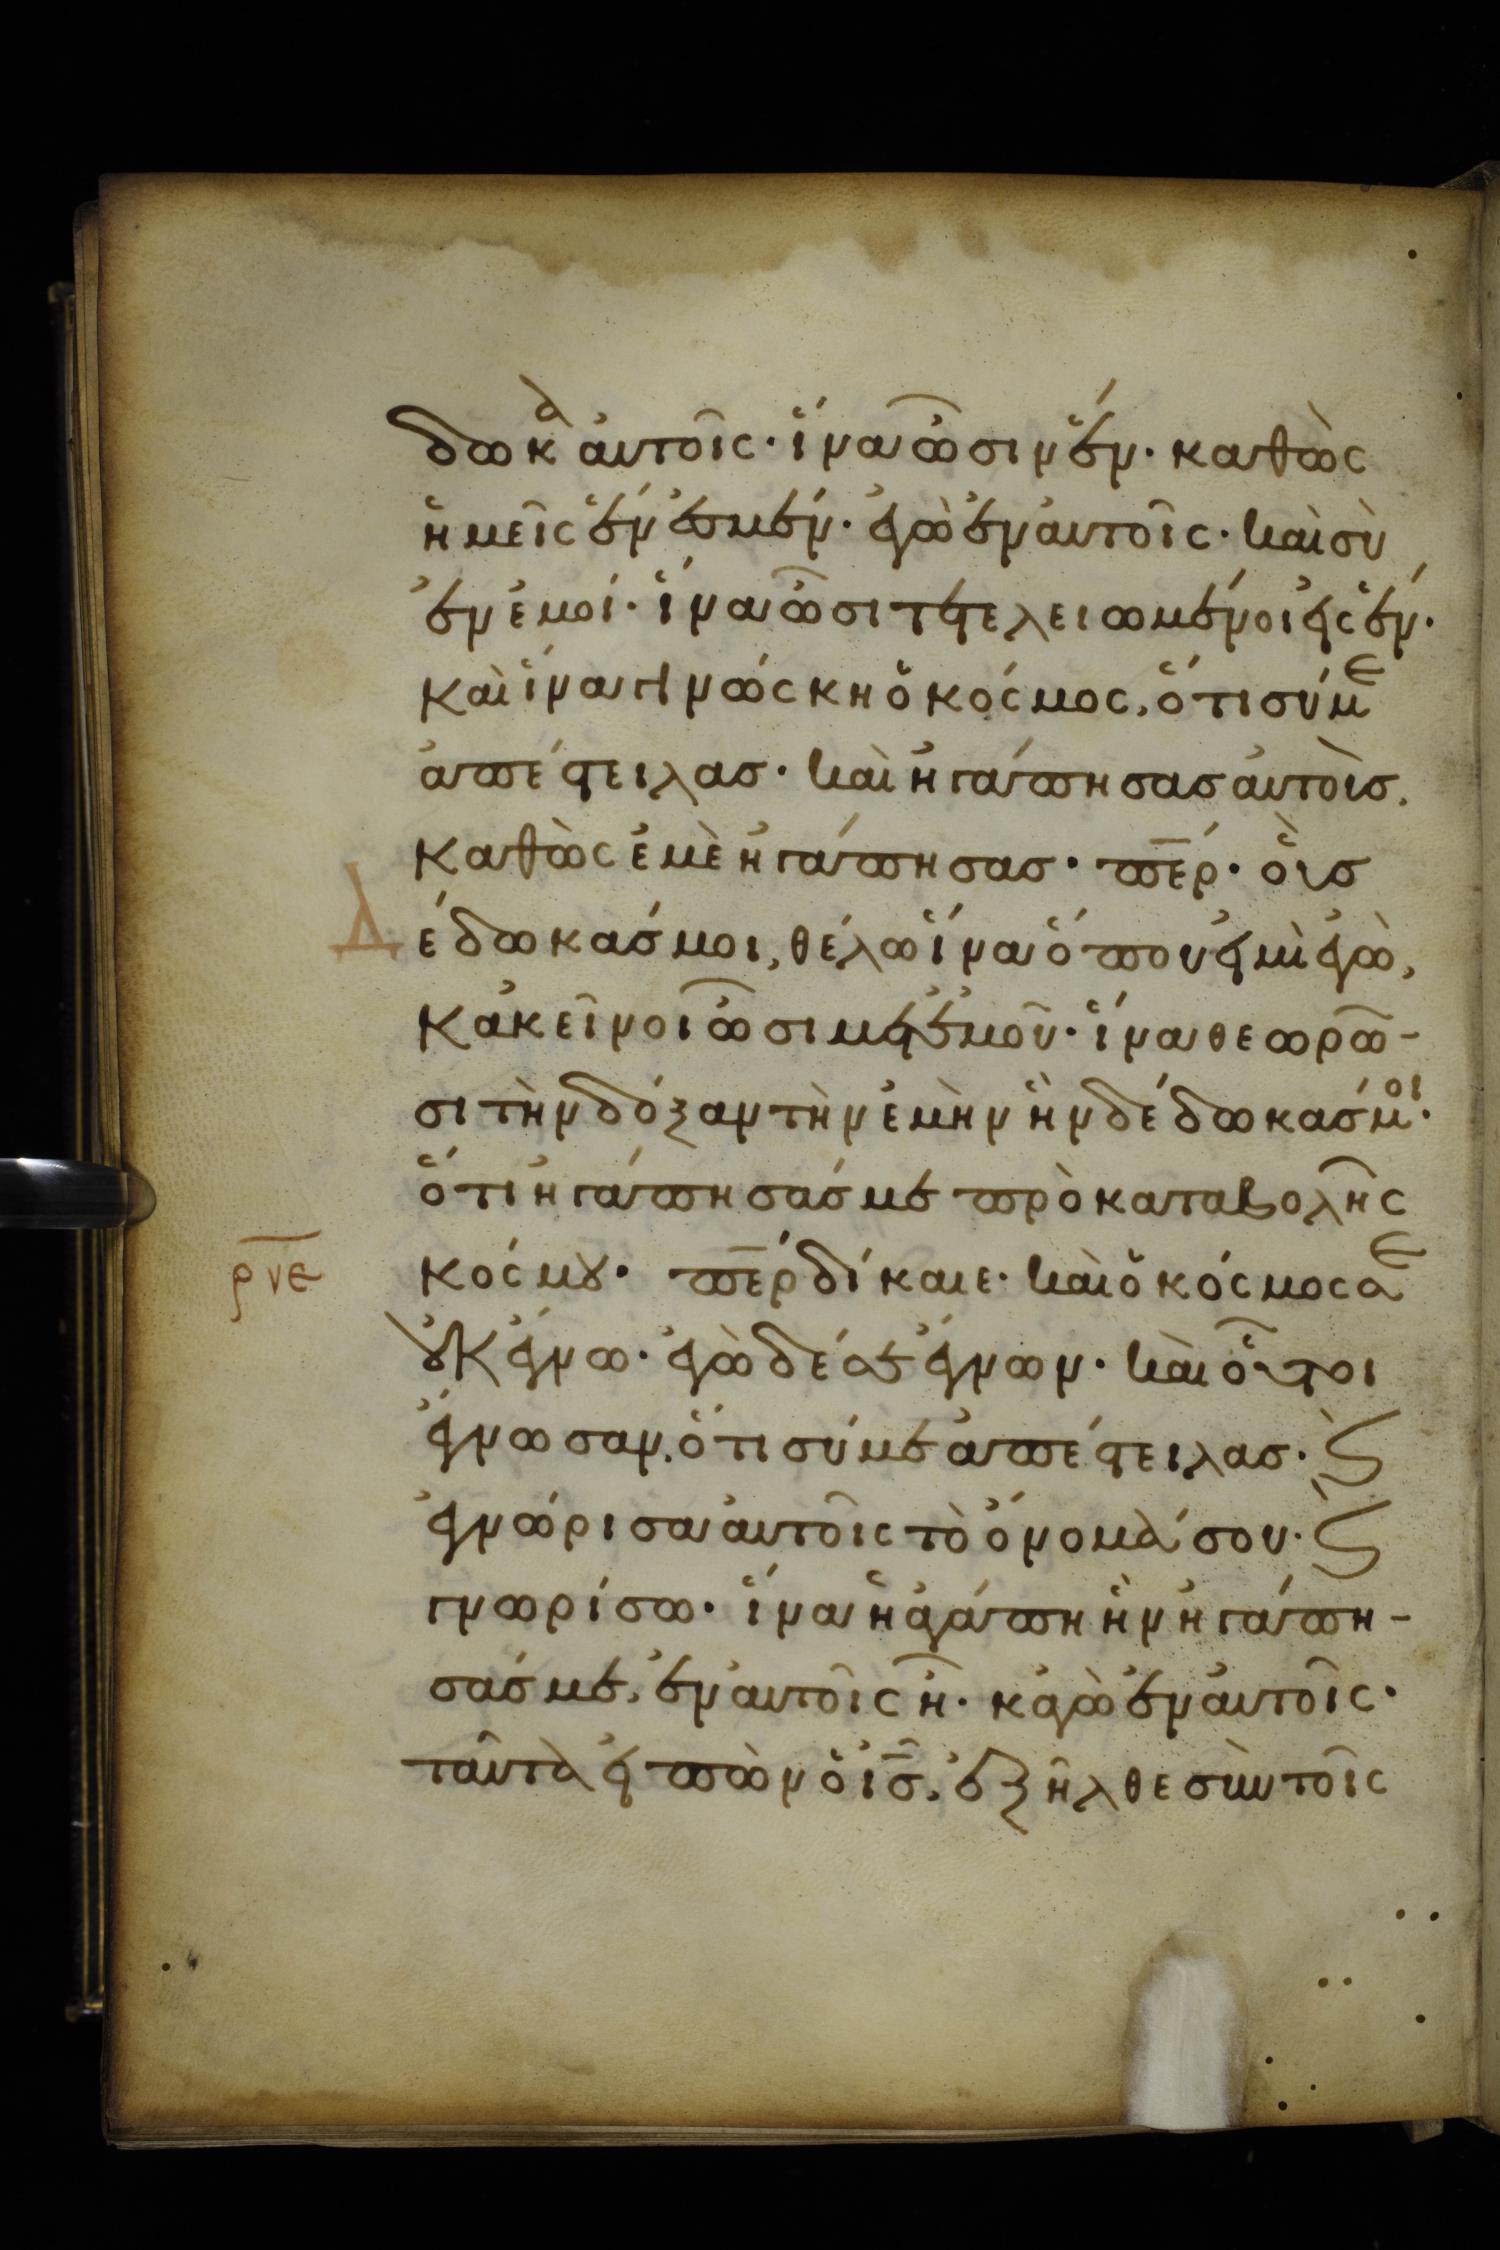 δωκα αὐτοῖς· ἵνα ὦσιν ἕν· καθὼς
ἡμεῖς ἕν ἐσμέν· ἐγὼ ἐν αὐτοῖς· καὶ σὺ
ἐν ἐμοί· ἵνα ὦσι τετελειωμένοι εἰς ἕν·
καὶ ἵνα γινώσκῃ ὁ κόσμος, ὅτι σύ με
ἀπέστειλας· καὶ ἠγάπησας αὐτοὺς,
καθὼς ἐμὲ ἠγάπησας· π̅ε̅ρ· οὓς
Δ ἔδωκάς μοι, θέλω ἵνα ὅπου εἰμὶ ἐγὼ,
κἀκεῖνοι ὦσι μετ᾽ ἐμοῦ· ἵνα θεωρῶ-
σι τὴν δόξαν τὴν ἐμὴν ἣν δέδωκάς μοι·
ὅτι ἠγάπησάς με πρὸ καταβολῆς
ρνε κόσμου· π̅ε̅ρ δίκαιε· καὶ ὁ κόσμος σε
οὐκ ἔγνω· ἐγὼ δέ σε ἔγνων· καὶ οὗτοι
ἔγνωσαν, ὅτι σύ με ἀπέστειλας· καὶ
ἐγνώρισα αὐτοῖς τὸ ὄνομά σου· καὶ
γνωρίσω· ἵνα ἡ ἀγάπη ἣν ἠγάπη-
σάς με, ἐν αὐτοῖς ᾖ· κἀγὼ ἐν αὐτοῖς·
ταῦτα εἰπὼν ὁ ι̅σ̅, ἐξῆλθε σὺν τοῖς